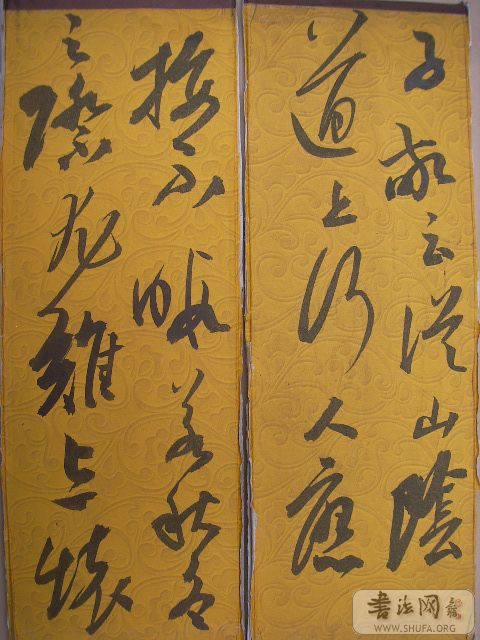 子敬云從山陰
道上行人應
接不暇若秋冬
之際尤難為懷
書法网
WWW.SHUFA.ORG